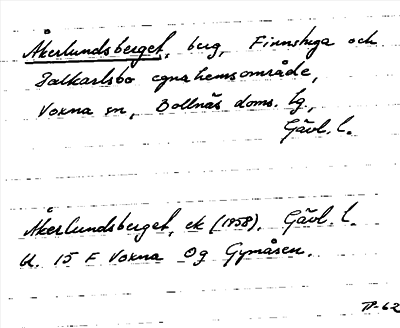 Åkerlundsberget, berg, Finnstuga och
Dalkarlsbo egnahemsområde,
Voxna sn, Bollnäs doms. tg.,
Gävl. l.
Åkerlundsberget, ek (1958). Gävl. l.
bl. 15 F Voxna Og Gymåsen.
P-62